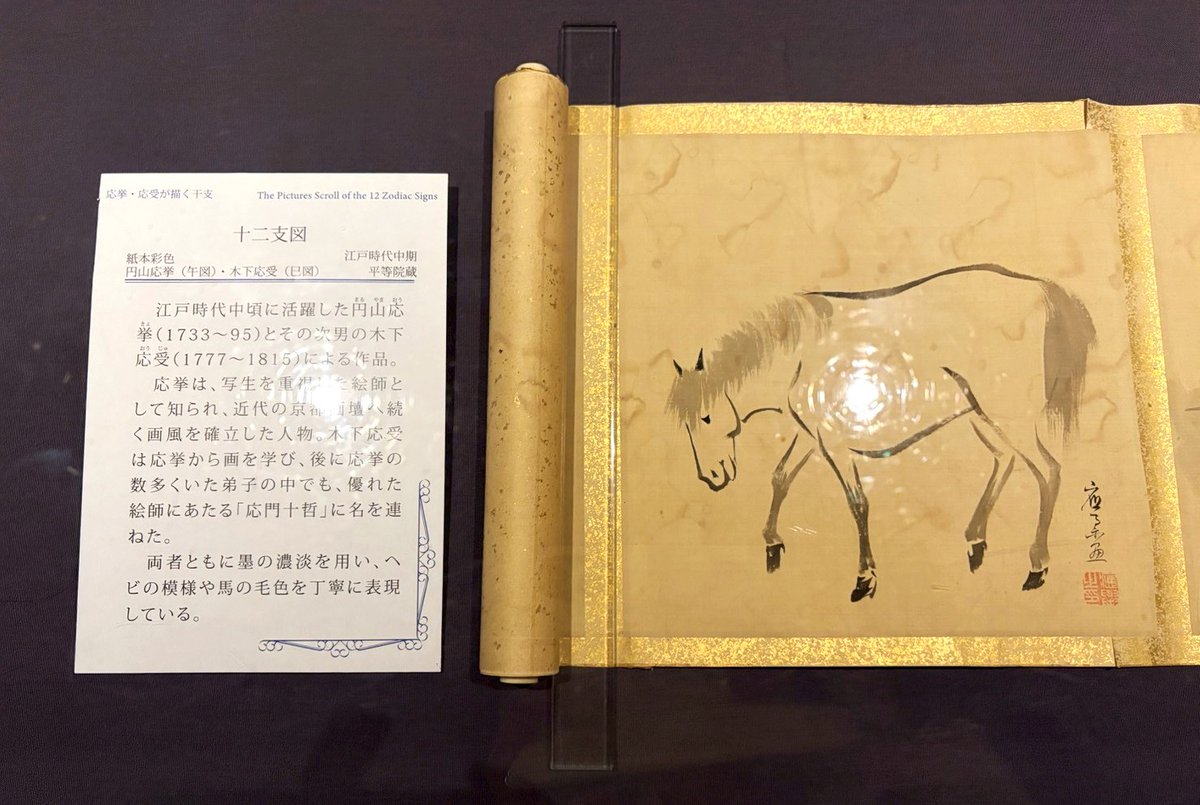 応挙・応受が描く干支
The Pictures Scroll of the 12 Zodiac Signs
十二支図
紙本彩色
江戸時代中期
円山応挙(午図)・木下応受(巳図)
平等院蔵
江戸時代中頃に活躍した円山応
挙(1733~95)とその次男の木下
応受(1777~1815)による作品。
応挙は、写生を重視した絵師と
して知られ、近代の京都画壇へ続
く画風を確立した人物。木下応受
は応挙から画を学び、後に応挙の
数多くいた弟子の中でも、優れた
絵師にあたる「応門十哲」に名を連
ねた。
両者ともに墨の濃淡を用い、ヘ
ビの模様や馬の毛色を丁寧に表現
している。